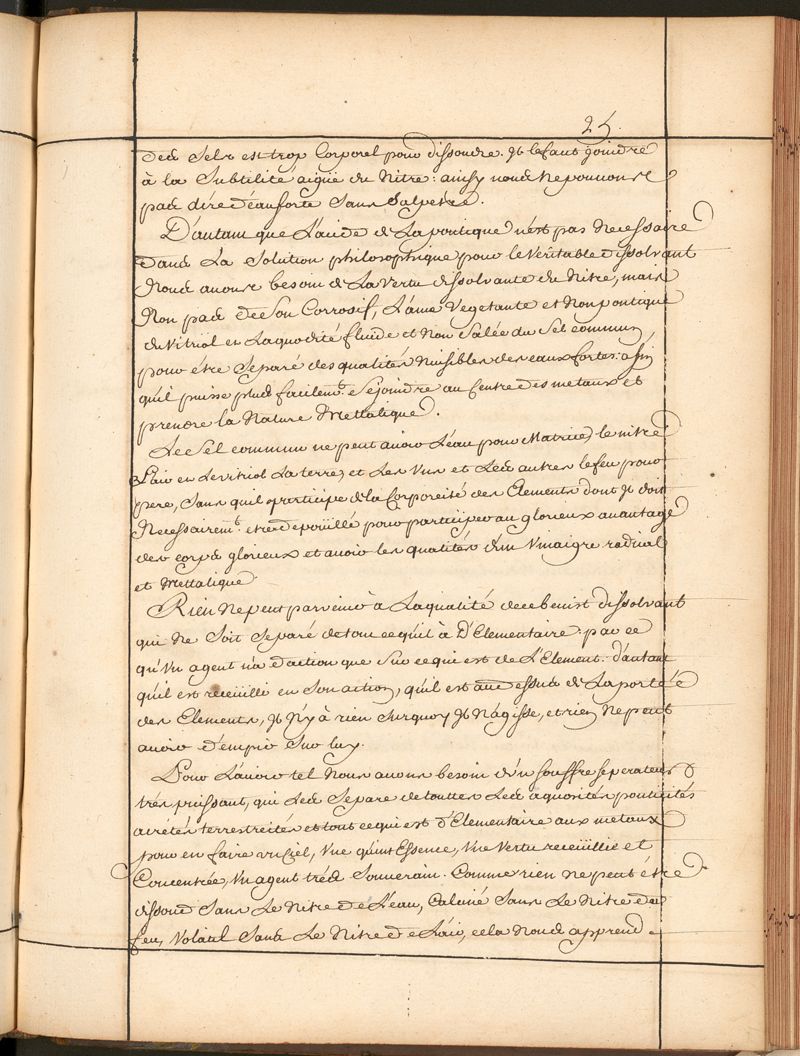 25.
des Sels est trop Corporel pour dissoudre. Il le faut joindre
à la Subtilité aigüe du Nitre: ainsy nous ne pouvons
pas dire d'eau forte Sans Salpetre.
D'autant que L'acide de La pontique n'est pas Necessaire
Dans La Solution philosophique pour le Veritable dissolvant
Nous avons besoin de La Vertu dissolvante du Nitre, mais
Non pas de Son Corrosif, L'ame Vegetante et Non pontique
du Vitriol en Laquodité fluide et Non Salée du Sel commun,
pour être Separé des qualités Nuisibles des eaux fortes: afin
qu'il puisse plus facilemt. Se joindre au Centre des metaux et
prendre la Nature Mettalique.
Le Sel commun ne peut avoir L'eau pour Matrice, le nitre
L'air en le vitriol La terre, et Les Uns et Les autres le feu pour
pere, Sans qu'il participe de la Corporeité des Elements dont Il doit
Necessairemt. etre depoüillé pour participer au glorieux avantage
des corps glorieux et avoir les qualités d'un Vinaigre radical
et Mettalique.
Rien ne peut parvenir à La qualité de ce benist dissolvant
qui ne Soit Separé de tout ce qu'il à D'Elementaire: par ce
qu'Un agent n'a d'action que Sur ce qui est de L'Element. d'autant
qu'il est receüilli en Son action, qu'il est au dessus de La portée
des Elements, Il n'y à rien Surquoy Il N'agisse, et rien Ne peut
avoir d'empir Sur luy.
Pour L'avoir tel Nous avons besoin d'Un souffre seperateur
trés puissant, qui Les Separe de touttes Les aquosités pontcités
aciétés terrestreités et tout ce qui est D'Elementaire aux metaux
pour en faire un Ciel, Une quint Essence, Une Vertu receüillie et
Concentrée, Un agent trés Souverain. Comme rien ne peut être
dissoud Sans Le Nitre de L'eau, Calciné Sans Le Nitre du
feu, Volatil Sans Le Nitre de L'air, cela Nous apprend